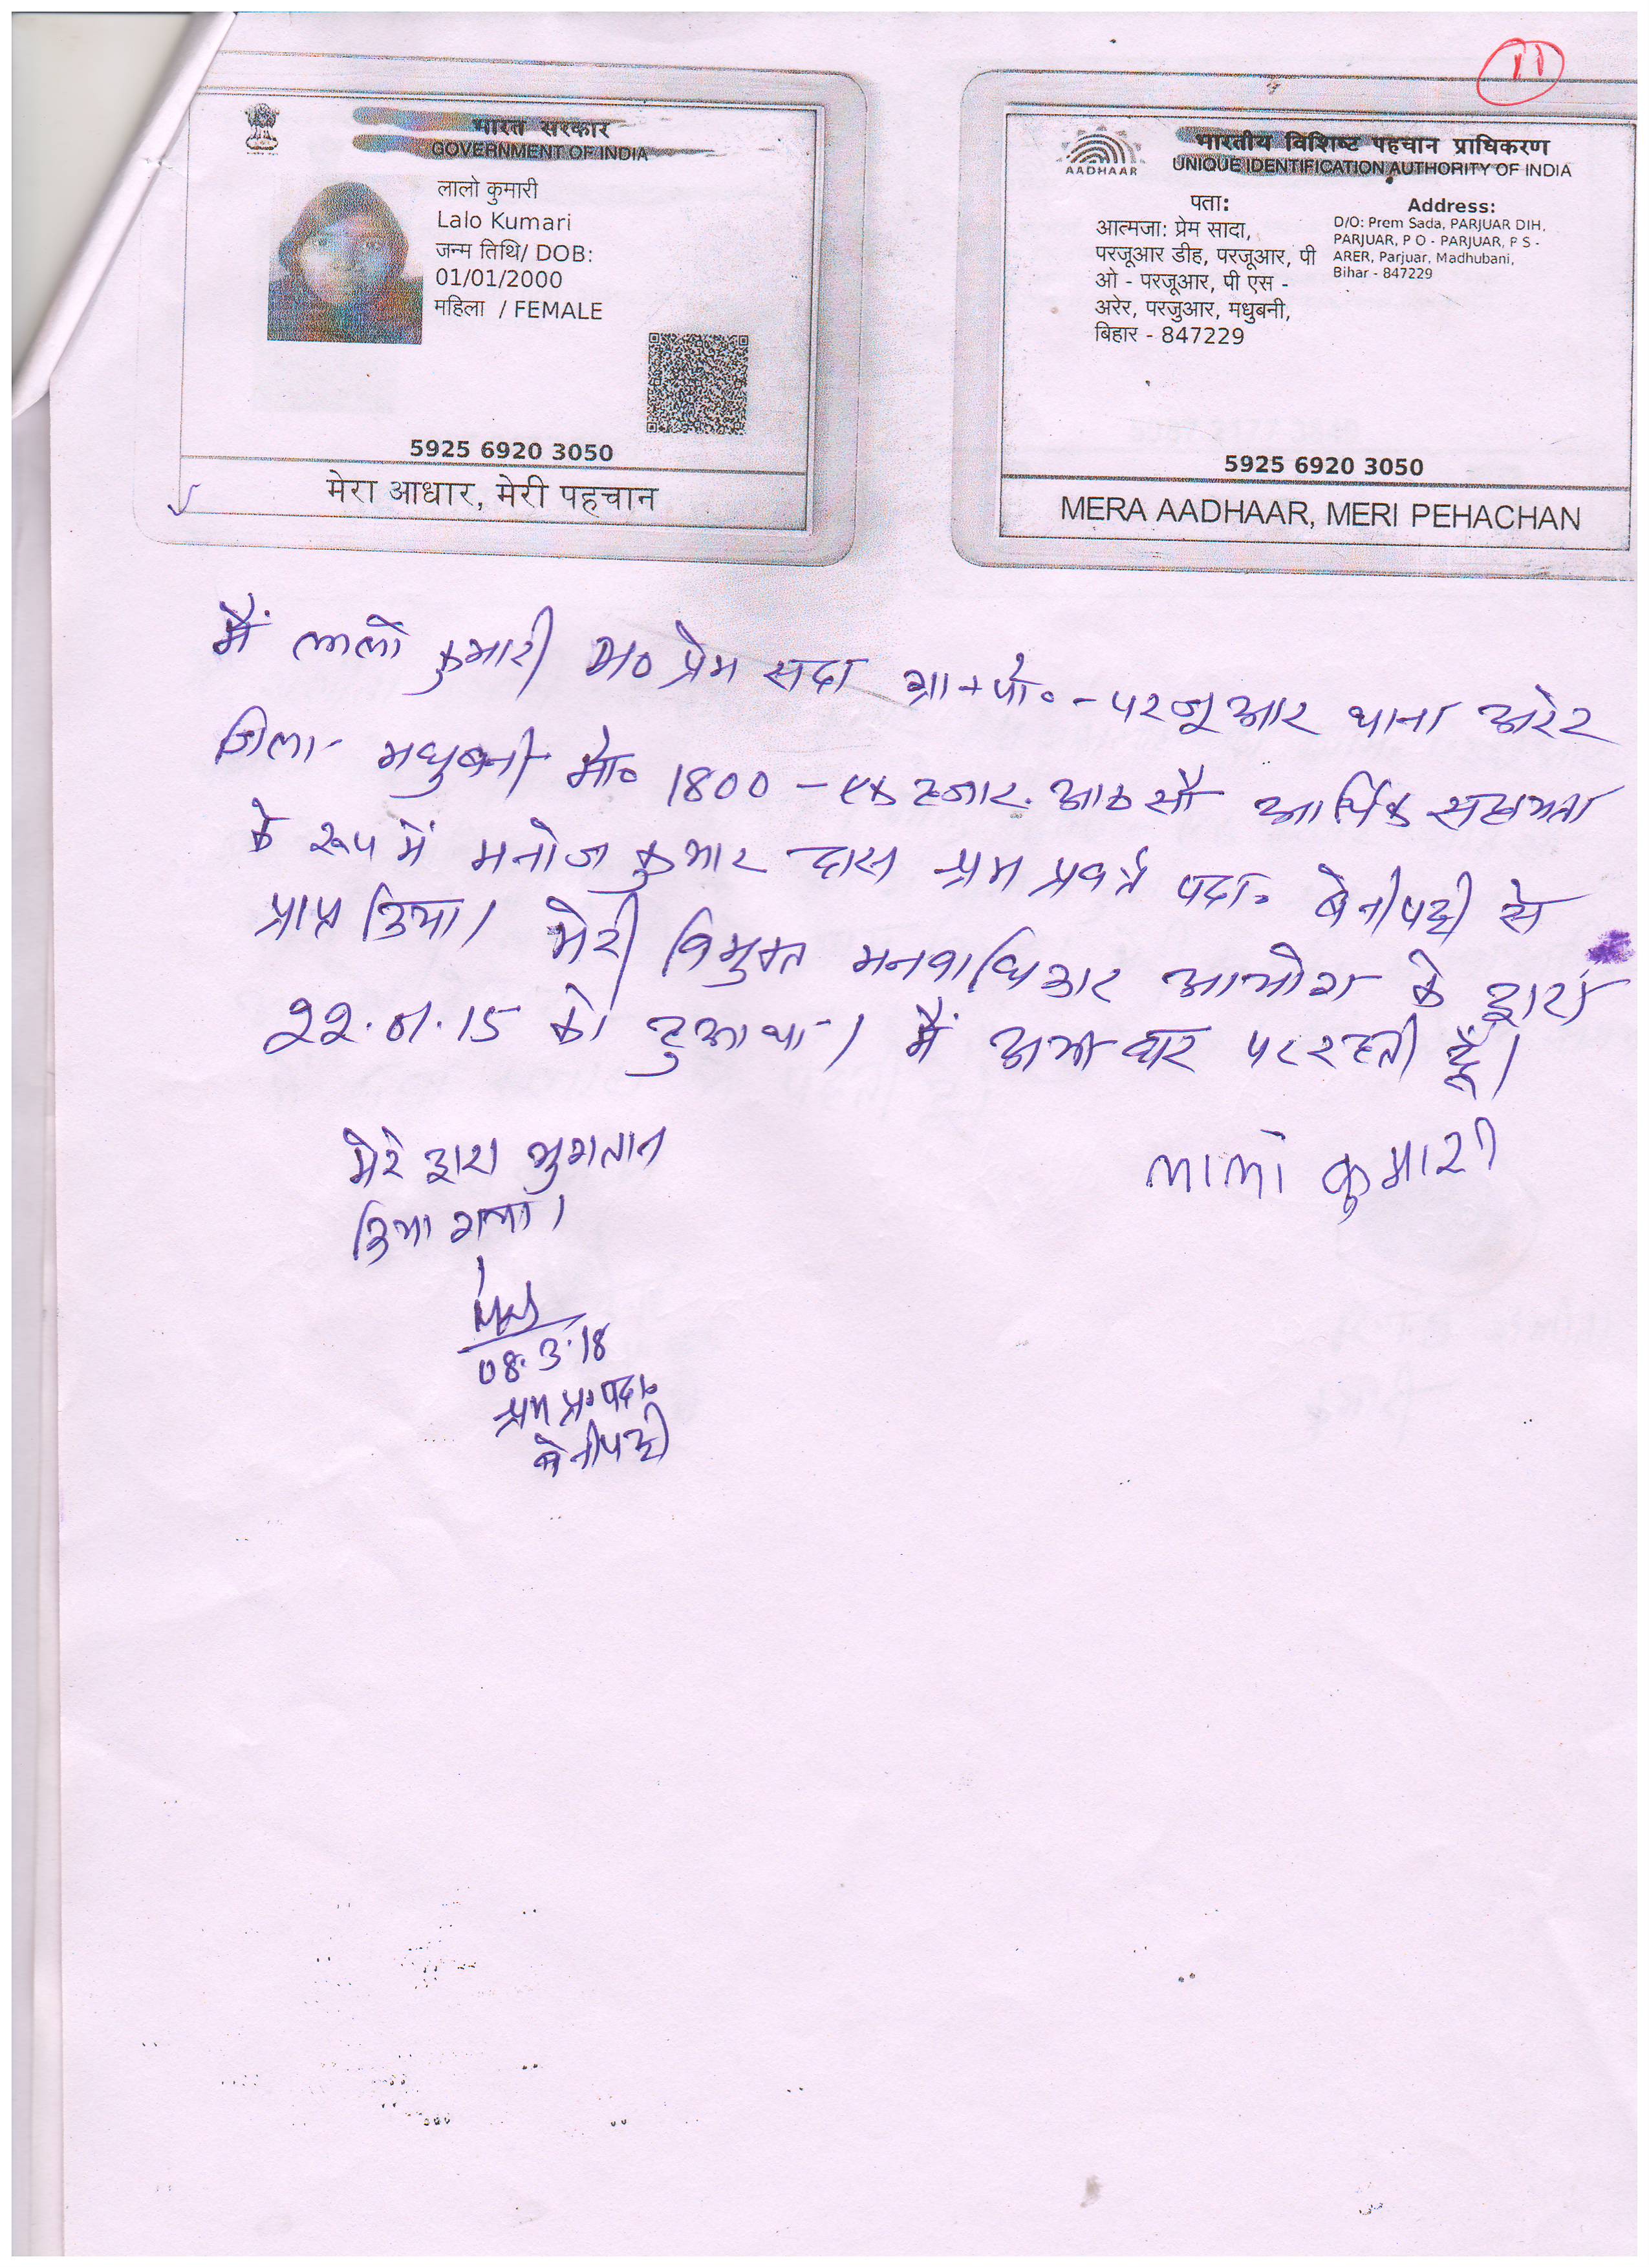 11
भारत सरकार
GOVERNMENT OF INDIA
लालो कुमारी
Lalo Kumari
जन्म तिथि/ DOB:
01/01/2000
महिला / FEMALE
5925 6920 3050
मेरा आधार, मेरी पहचान
भारतीय विशिष्ट पहचान प्राधिकरण
UNIQUE IDENTIFICATION AUTHORITY OF INDIA
AADHAAR
पता:
आत्मजा: प्रेम सादा,
परजूआर डीह, परजूआर, पी
ओ - परजूआर, पी एस -
अरेर, परजुआर, मधुबनी,
बिहार - 847229
Address:
D/O: Prem Sada, PARJUAR DIH,
PARJUAR, P O - PARJUAR, P S -
ARER, Parjuar, Madhubani,
Bihar - 847229
5925 6920 3050
MERA AADHAAR, MERI PEHACHAN
मैं लालो कुमारी प्रेम सदा ग्रा+पो०-परजूआर थाना अरेर
जिला- मधुबनी मो० 1800 - एक हजार आठ सौ आर्थिक सहायता
के रूप में मनोज कुमार दास श्रम प्रवर्तन पदा० बेनीपट्टी से
प्राप्त किया। मेरी विमुक्त मनवाधिकार आयोग के द्वारा
22.01.15 को हुआ था। मैं अभी घर पर रहती हूँ।
मेरे द्वारा भुगतान
किया गया।
लालो कुमारी
08.3.18
श्रम प्र० पदा०
बेनीपट्टी